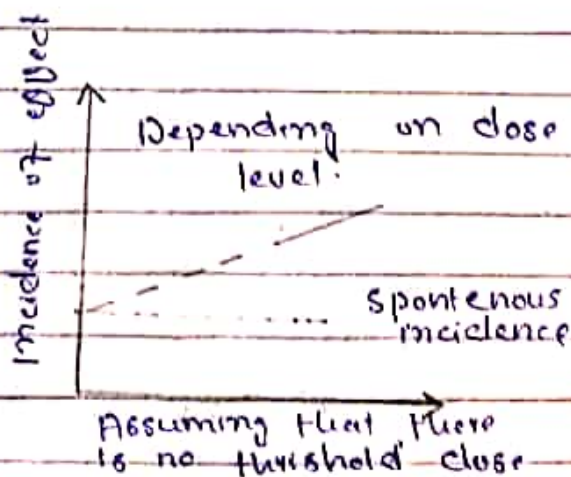 Incidence of effect
Depending on dose
level.
Spontenous
incidence
Assuming that there
is no thrishold dose